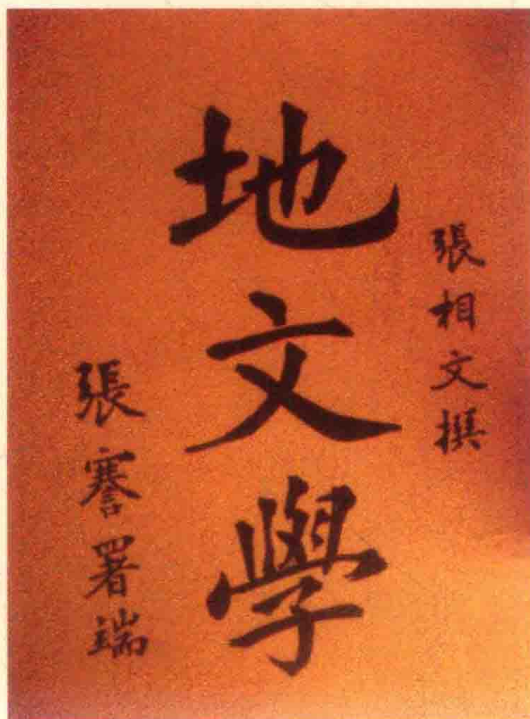 張相文撰
地文學
張謇署端